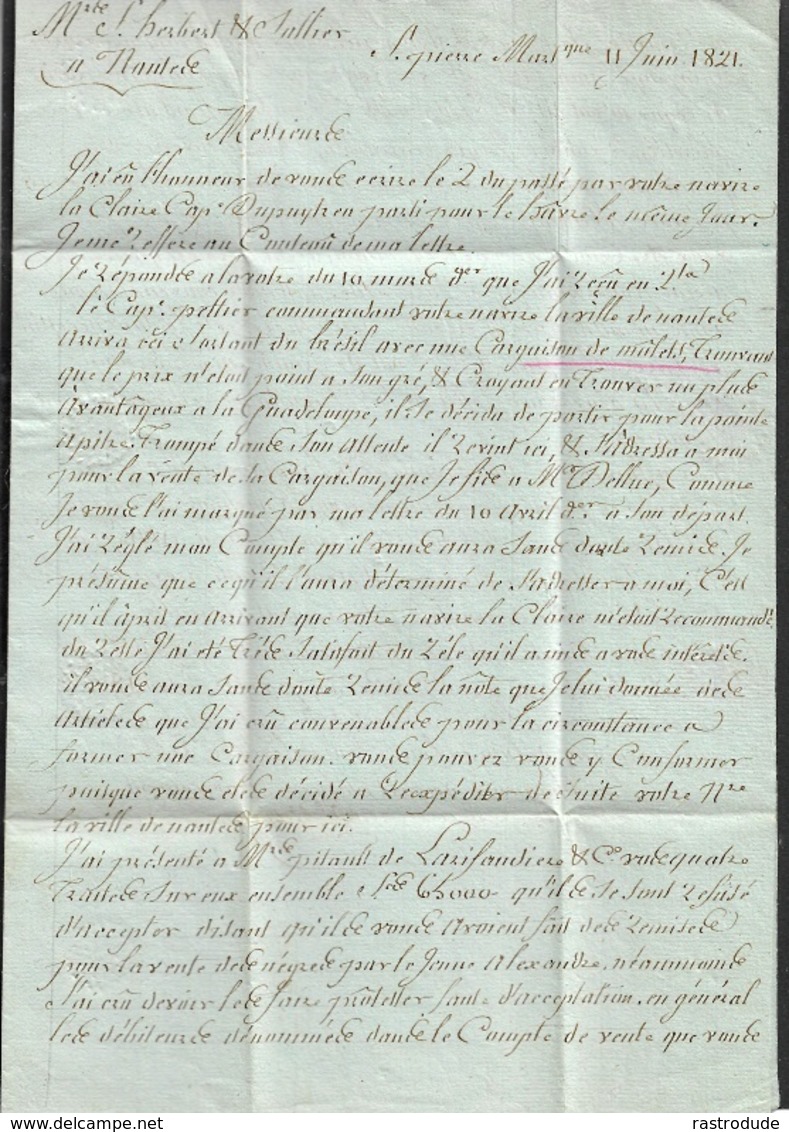 Mrs. S. herbert & Sallier
a Nantes
St. pierre Mart.que 11 Juin 1821.
Messieurs
J'ai eû l'honneur de vous ecrire le 2 du passé par votre navire
la Claire Cap.e Dupuytren parti pour le hâvre le même Jour.
Je me Reffere au Conteau de ma lettre.
Je Réponds a la votre du 10 mars der. que J'ai Reçu en
le Cape. peltier commandant votre navire la ville de nantes
Arriva ici Sortant du brésil avec une Cargaison de mulets, Trouvant
que le prix n'etoit point a Son gré, & Croyant en Trouver un plus
Avantageux a la Guadeloupe, il Se décida de partir pour la pointe
apitre. Trompé dans Son Attente il Revint ici, & S'adressa a moi
pour la vente de Sa Cargaison, que Je fis a Mr. Dellue, Comme
Je vous l'ai marqué par ma lettre du 10 Avril der. a Son départ.
J'ai Réglé mon Compte qu'il vous aura Sans doute Remis. Je
présume que ce qu'il l'aura déterminé de S'adresser a moi, C'est
qu'il âprit en Arrivant que votre navire la Claire m'étoit Recommandé.
du Reste J'ai eté Trés Satisfait du Zéle qu'il a mis a vos intérêts.
il vous aura Sans doûte Remis la nôte que Je lui donnée des
Articles que J'ai crû convenables pour la circonstance a
former une Cargaison. vous pouvez vous y Conformer
puisque vous etes décidé a Reexpédier de Suite votre Nre
la ville de nantes pour ici.
J'ai présenté a Mrs. pitault de Larifaudiere & Co. vos quatre
Traites Sur eux ensemble 65000 qu'ils Se Sont Refusé
d'accepter disant qu'ils vous Avoient fait des Remises
pour la vente des négres par le Jeune Alexandre. néanmoins
J'ai crû devoir les faire protester faute d'acceptation. en général
les débiteurs dénommés dans le Compte de vente que vous
www.delcampe.net
rastrodude